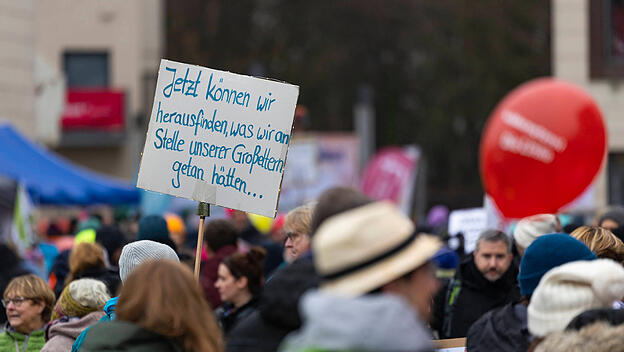 Jetzt können wir
herausfinden, was wir an
Stelle unserer Großeltern
getan hätten...